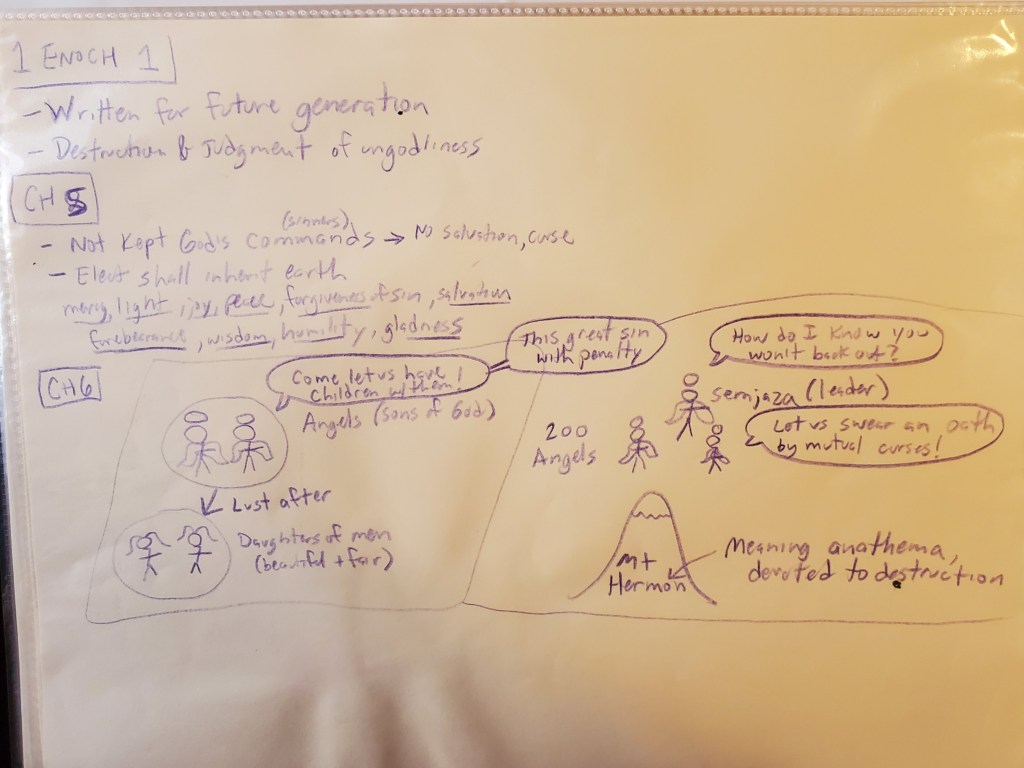 1 ENOCH 1
- Written for future generation
- Destruction & Judgment of ungodliness
CH 5
(sinners)
- Not Kept God's Commands → No salvation, curse
- Elect shall inherit earth
mercy, light, joy, peace, forgiveness of sin, salvation
forebearance, wisdom, humility, gladness
CH6
Come let us have
children w/them!
This great sin
with penalty
Angels (sons of God)
Lust after
Daughters of men
(beautiful + fair)
How do I know you
won't back out?
semjaza (leader)
Let us swear an oath
by mutual curses!
200
Angels
Mt
Hermon
Meaning anathema,
devoted to destruction